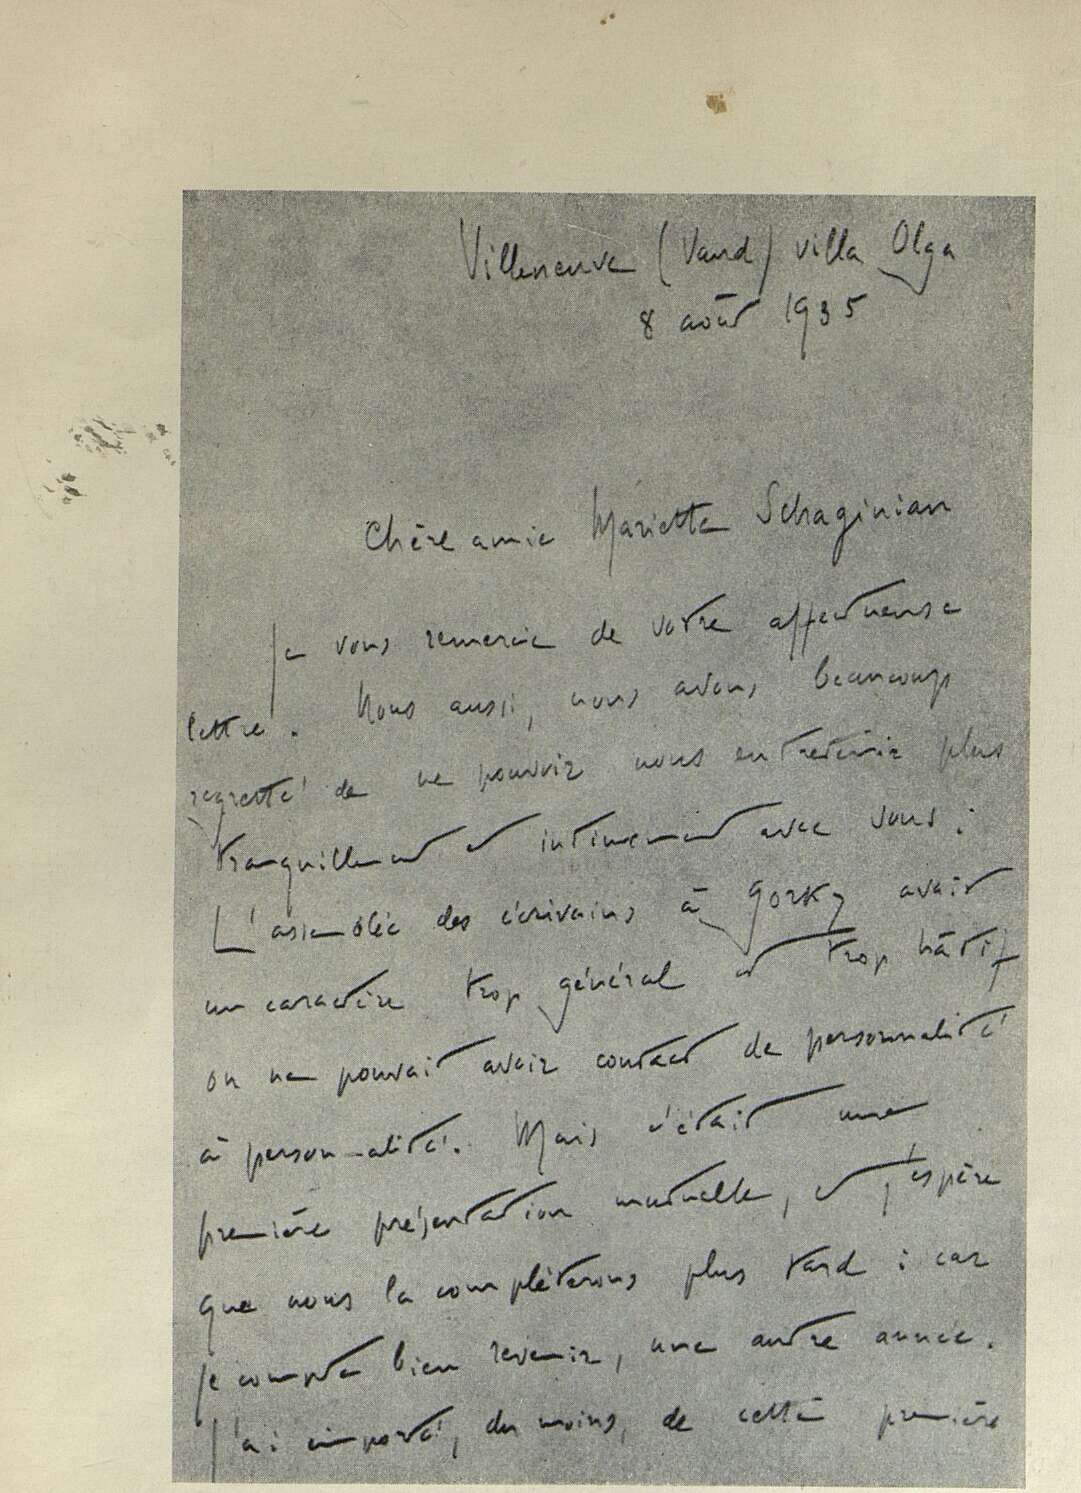 Villeneuve (Vaud) villa Olga
8 août 1935
Chère amie Mariette Schaginian
Je vous remercie de votre affectueuse
lettre. Nous aussi, nous avons beaucoup
regretté de ne pouvoir nous entretenir plus
tranquillement et intimement avec vous :
L'assemblée des écrivains à Gorky avait
un caractère trop général et trop hâtif
on ne pouvait avoir contact de personnalité
à personnalité. Mais c'était une
première présentation mutuelle, et j'espère
que nous la complèterons plus tard : car
je compte bien revenir, une autre année.
J'ai emporté, du moins, de cette première